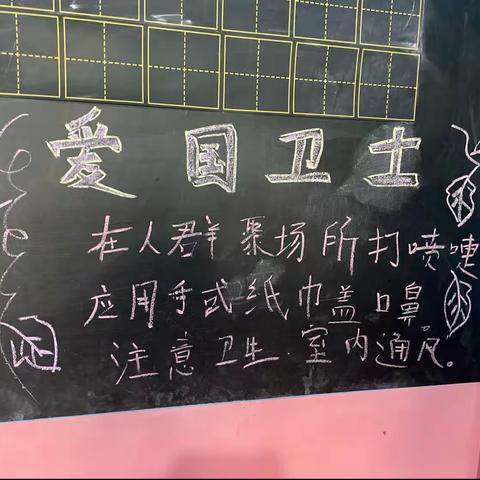 爱国卫士
在人群聚场所打喷嚏
应用手或纸巾盖口鼻
注意卫生.室内通风。